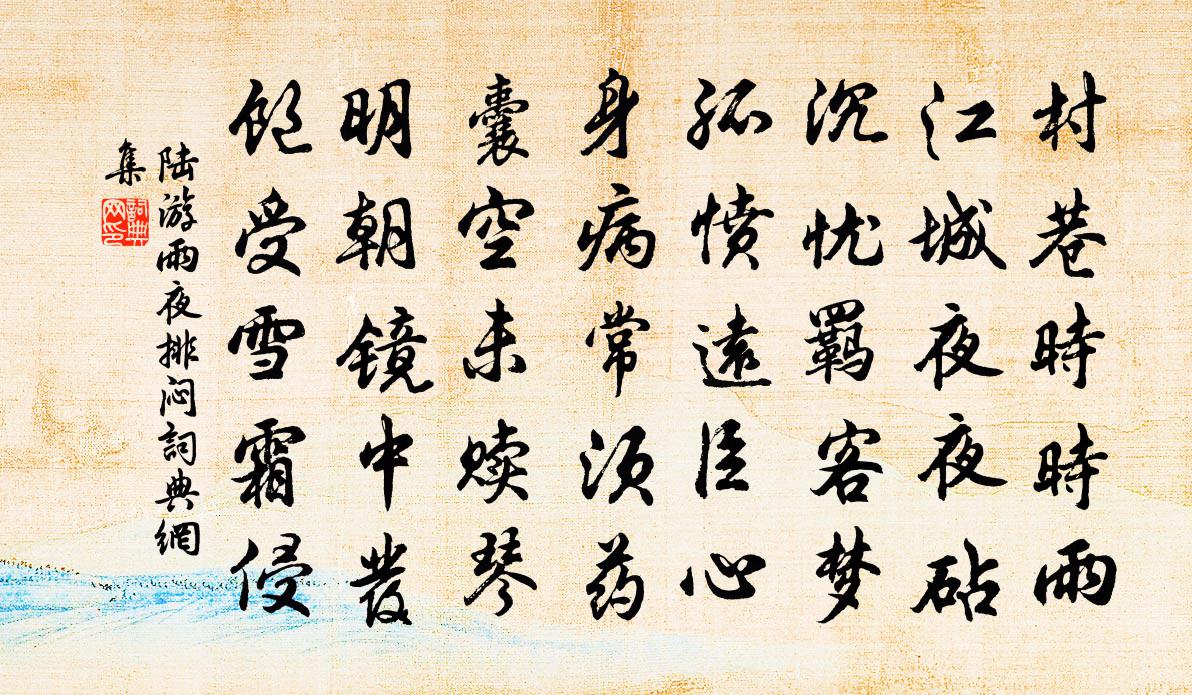 村巷時時雨
江城夜夜砧
沉忧羁客梦
孤愤遠臣心
身病常须药
囊空未赎琴
明朝镜中發
饱受雪霜侵
陆游雨夜排闷詞典網
集
詞典
网印